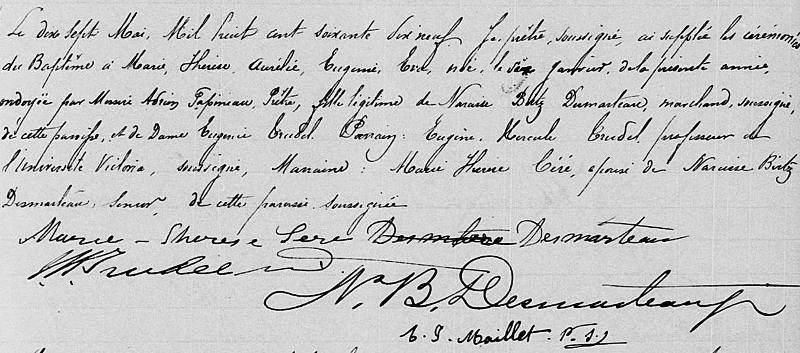 Le dix sept Mai, Mil huit cent soixante dix neuf Je, prêtre, soussigné, ai supplée les cérémonies
du Baptême à Marie, Therese, Aurélie, Eugenie, Eva, née, le six janvier, de la présente année,
ondoyée par Messire Adrien Papineau, Prêtre, fille légitime de Narcisse Birtz Desmarteau, marchand, soussigné,
de cette paroisse, et de Dame Eugenie Trudel. Parrain: Eugène, Hercule Trudel, professeur de
l'Université Victoria, soussigné, Marraine: Marie Therese Céré, épouse de Narcisse Birtz
Desmarteau, Senior, de cette paroisse soussignée
Marie-Therese Sere Desmarteau
Trudel
N. B. Desmarteau
Maillet. P. S. S